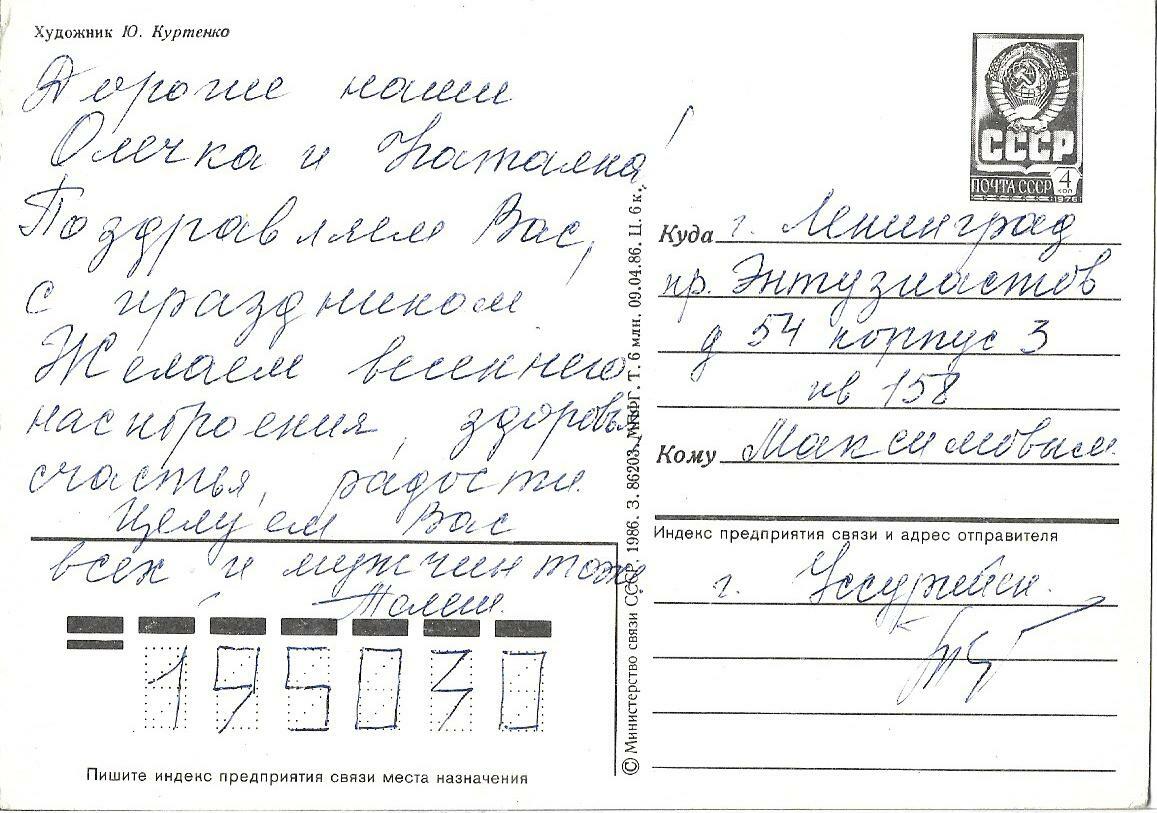 Художник Ю. Куртенко
Дорогие наши
Олечка и Наташка!
Поздравляем Вас,
с праздником
Желаем весеннего
настроения, здоровья
счастья, радости.
Целуем Вас
всех и мужчин тоже
СССР
ПОЧТА СССР 4 коп
1976
Куда г. Ленинград
пр. Энтузиастов
д 54 корпус 3
кв 158
Кому Максимовым
Индекс предприятия связи и адрес отправителя
г. Уссурийск.
195030
Пишите индекс предприятия связи места назначения
© Министерство связи СССР. 1986. З. 86203. МПФГ. Т. 6 млн. 09.04.86. Ц. 6 к.